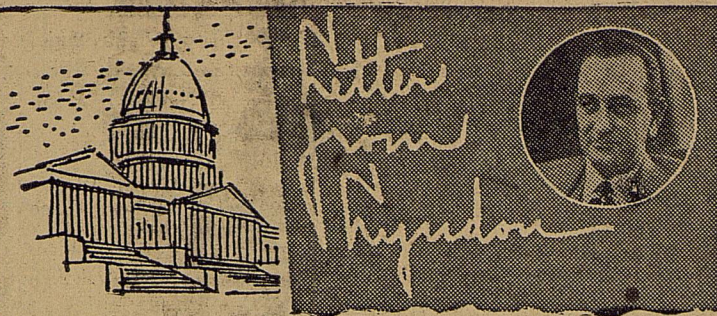 Letter
from
Lyndon